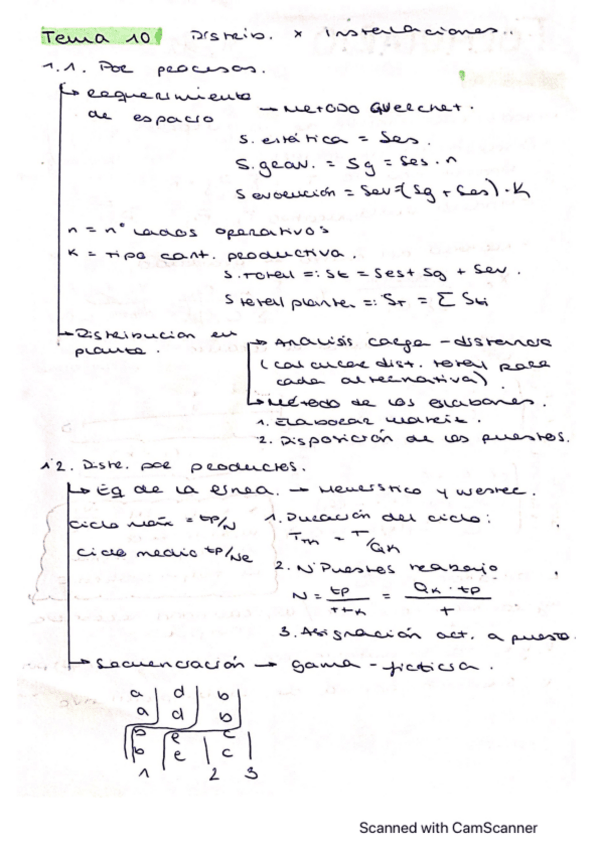 Tema 10 Distrib. x Instalaciones..
1.1. Por procesos.
requerimiento de espacio → Metodo Guerchet.
S. estática = Ses.
S. grav. = Sg = Ses · n
S evolución = Sev = (Sg + Ses) · K
n = nº lados operativos
K = tipo cant. productiva.
S. Total =: St = Ses + Sg + Sev.
S total planta =: ST = Σ Sti
Distribución en planta.
→ Análisis carga - distancia
(calcular dist. total para
cada alternativa).
→ Método de los eslabones.
1. Elaborar matriz.
2. Disposición de los puestos.
1.2. Distr. por productos.
→ Eq de la línea. → Heurístico y Wester.
ciclo máx = tp/N
ciclo medio tp/Ne
1. Duración del ciclo:
= T/QK
2. Nº Puestos trabajo
N = tp/TTK = QK · tp / T
3. Asignación act. a puesto.
→ Secuenciación → gama - ficticia.
a | d | b |
a | d | b
b | e | c
b | e | c |
1 2 3
Scanned with CamScanner